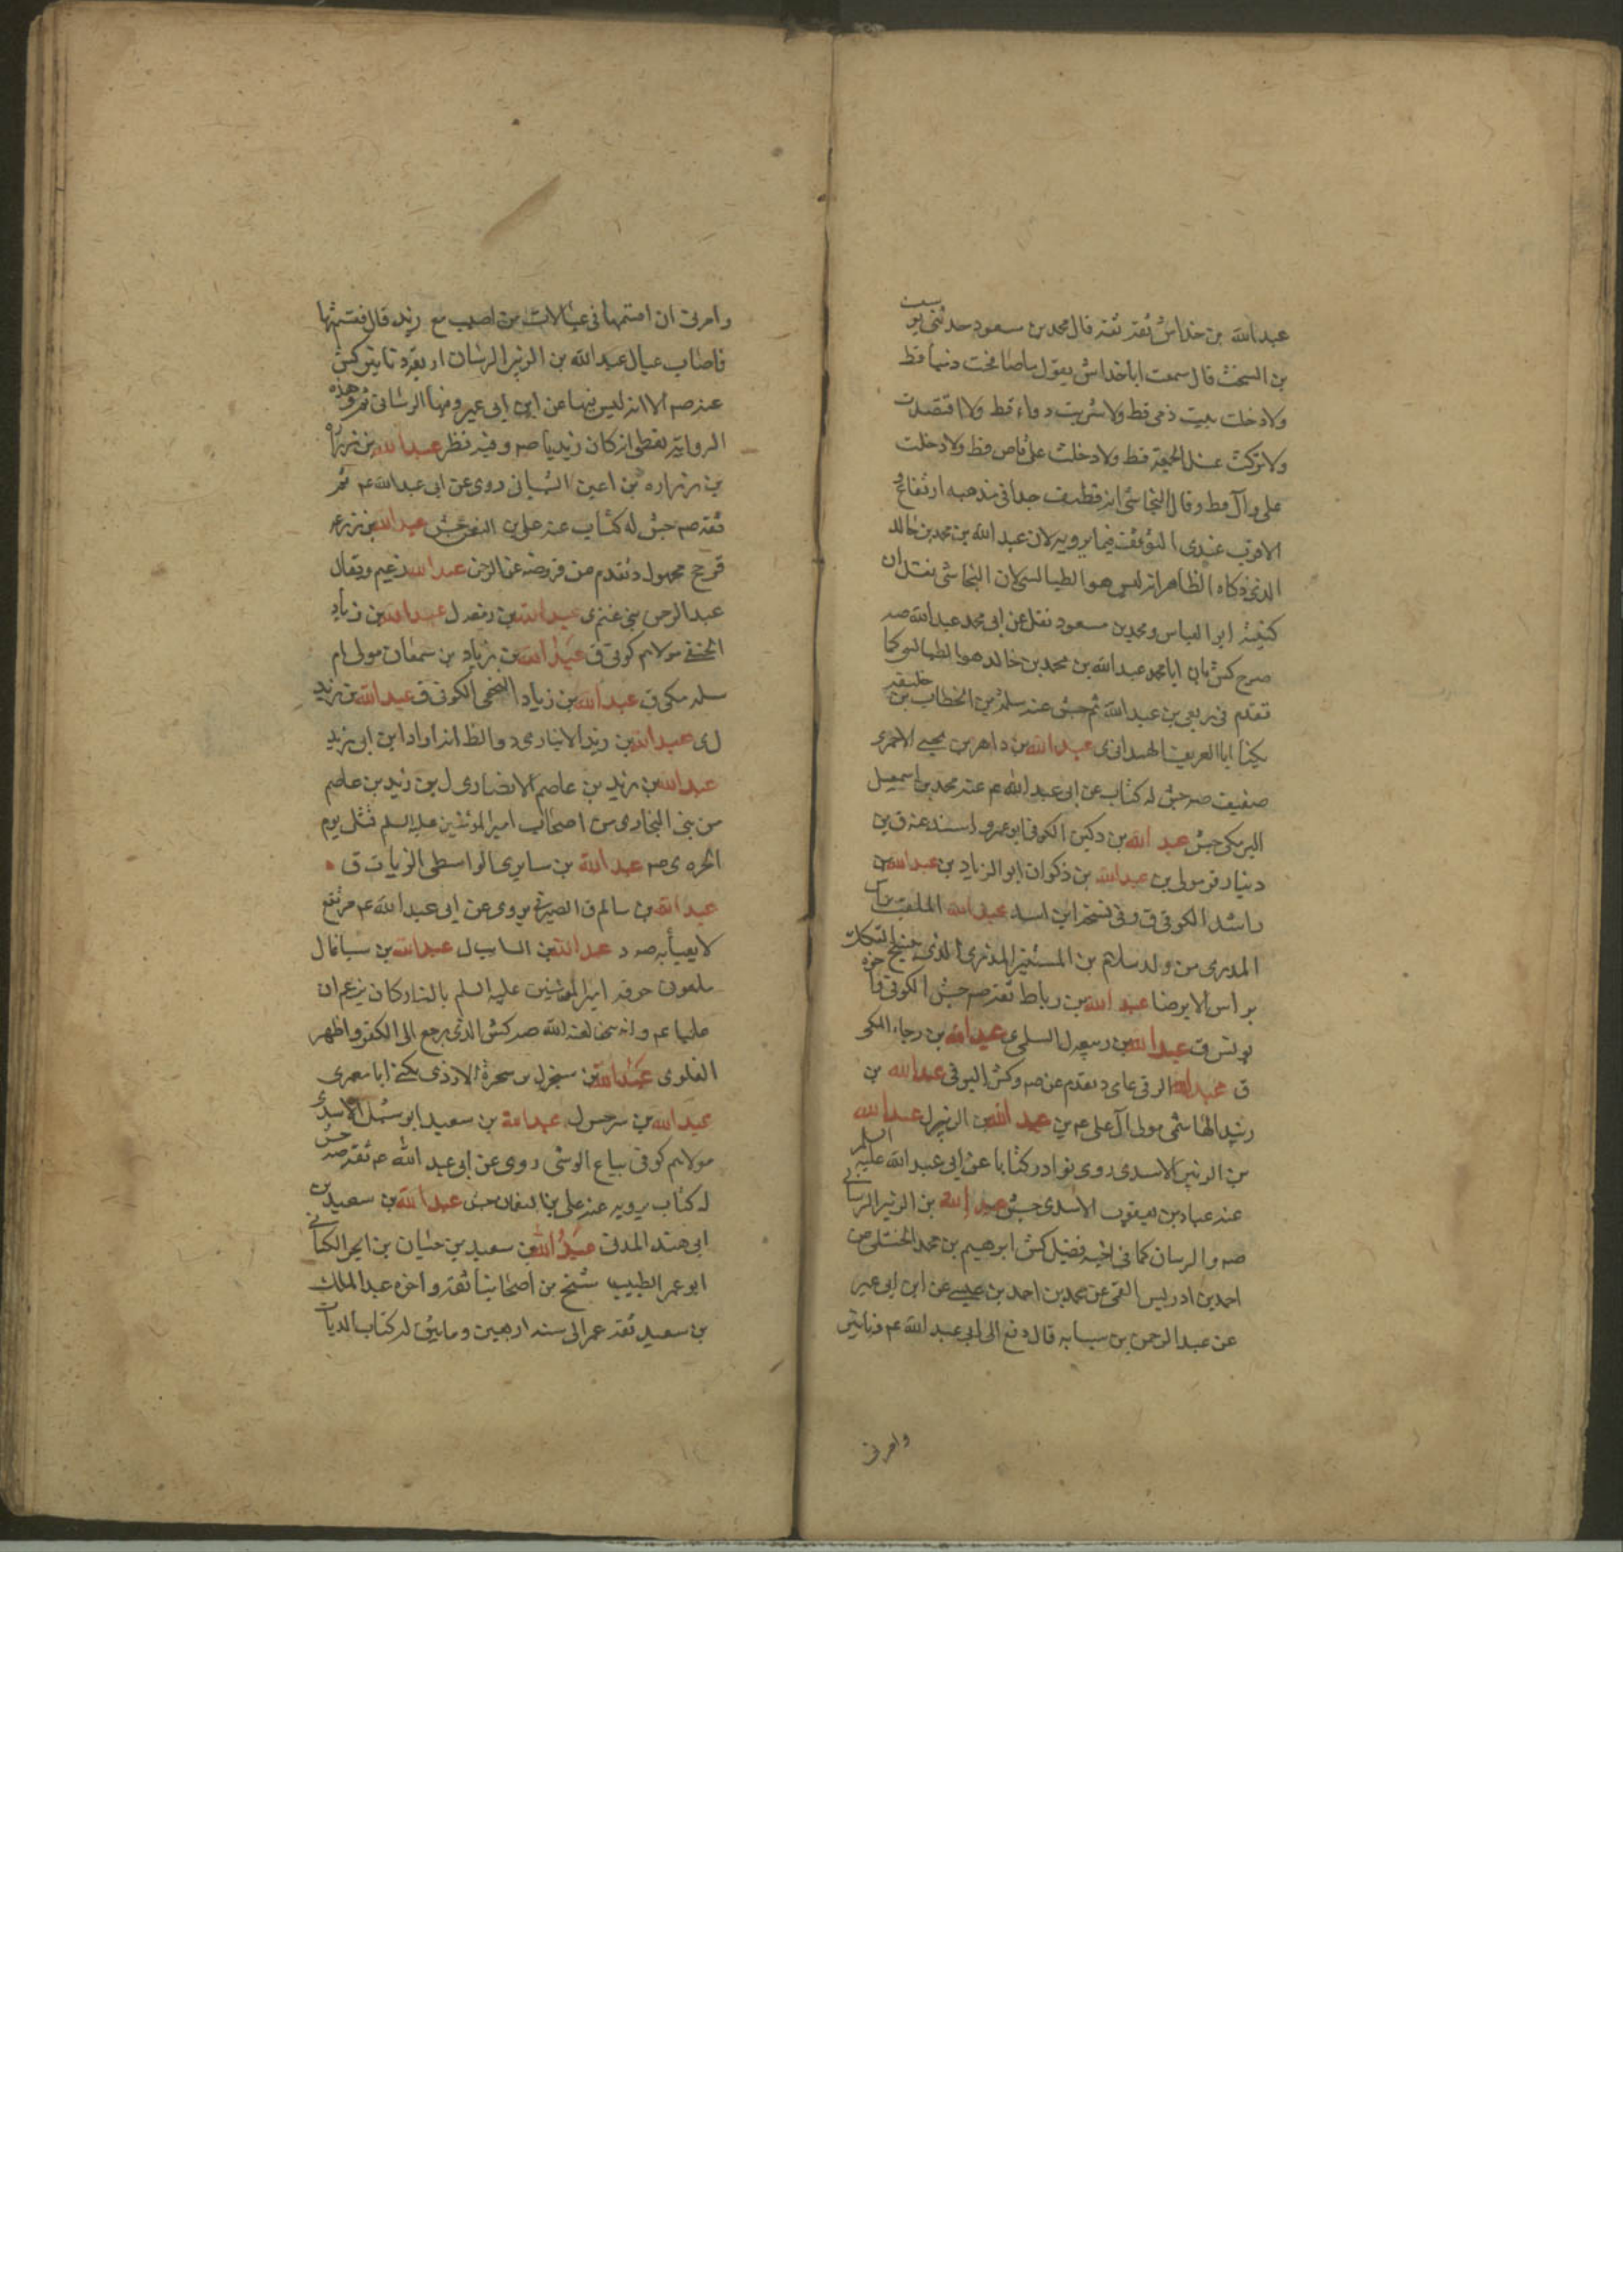 عبدالله بن خداش ثقة ثقة قال محمد بن مسعود حدثنى يوسف
بن السخت قال سمعت اباخداش يقول ماصافحت دنيا قط
ولادخلت بيت ذمى قط ولاشربت دواء قط ولاافتصدت
ولاتركت غسل الجمعة قط ولادخلت على قاض قط ولادخلت
على وال قط وقال النجاشى انه ضعيف جدا فى مذهبه ارتفاع
الاقرب عندى التوقف فيما يرويه لان عبدالله بن محمد بن خالد
الذى ذكاه الظاهر انه ليس هو الطيالسى لان النجاشى نقل ان
كنيته ابو العباس ومحمد بن مسعود نقل عن ابى محمد عبدالله صه
صرح كش بان ابا محمد عبدالله بن محمد بن خالد هو الطيالسى كما
تقدم فى ربعى بن عبدالله ثم جش عنه سلمة بن الخطاب بن خليفة
يكنا ابا العريف الهمدانى ى عبدالله بن داهر بن يحيى الاحمرى
ضعيف صه جش له كتاب عن ابى عبدالله عم عنه محمد بن اسمعيل
البرمكى جش عبدالله بن دكين الكوفى ابو عمرو اسند عنه ق بن
دينار قر مولى بن عبدالله بن ذكوان ابو الزناد بن عبدالله بن
راشد الكوفى ق وفى نسخة ابن اسد عبدالله الملقب
المدرى من ولد سلام بن المستنير
براس لا يرضا عبدالله بن رباط ثقة صه جش الكوفى
يونس ق عبدالله بن ربيعة ل السلمى ى عبدالله بن رجاء المكى
ق عبدالله الرقى عاى د تقدم عن صه وكش البرقى عبدالله بن
رشيد الهاشمى مولى آل على عم ين عبدالله بن الزبير ل عبدالله
بن الزبير الاسدى روى نوادر كتابا عن ابى عبدالله عليه السلم
عنه عباد بن يعقوب الاسدى جش عبدالله بن الزبير الرسانى
صه والرسان كما فى اخيه فضيل كش ابرهيم بن محمد الختلى عن
احمد بن ادريس القمى عن محمد بن احمد بن عيسى عن ابن ابى عمير
عن عبدالرحمن بن سيابه قال دفع الى ابى عبدالله عم دنانير
وامرنى
وامرنى ان اقسمها فى عيالات من اصيب مع زيد قال فقسمتها
فاصاب عيال عبدالله بن الزبير الرسان اربعة دنانير كش
عنه صه الا انه ليس فيها عن ابن ابى عمير ومنها الرسانى ثم وهذه
الرواية يعطى انه كان زيديا صه وفيه نظر عبدالله بن زراره
بن زراره بن اعين الشيبانى روى عن ابى عبدالله عم ثم
ثقة صه جش له كتاب عنه على بن النعمن جش عبدالله بن زرعه
قزح مجهول د تقدم من فروضة عبدالله زعيم ويقال
عبدالرحمن بن غنم ى عبدالله بن زمعه ل عبدالله بن زياد
الحنفى مولاهم كوفى ق عبدالله بن زياد بن سمعان مولى ام
سلمه مكى ق عبدالله بن زياد النخعى الكوفى ق عبدالله بن زيد
ل ى عبدالله بن زيد الانبارى د والظ انه اراد ابن ابى زيد
عبدالله بن زيد بن عاصم الانصارى ل بن زيد بن عاصم
من بنى النجارى من اصحاب امير المؤمنين عليه السلم قتل يوم
الحره ى صه عبدالله بن سابرى الواسطى الزيات ق
عبدالله بن سالم ق الصيرفى يروى عن ابى عبدالله عم مرتفع
لايعبأ به صه د عبدالله بن السايب ل عبدالله بن سبا غال
ملعون حرقه امير المؤمنين عليه السلم بالنار كان يزعم ان
عليا عم وانه نبى لعنه الله صه كش الذى رجع الى الكفر واظهر
الغلو ى عبدالله بن سخبرة الازدى يكنى ابا معمر ى
عبدالله بن سرجس ل عبدالله بن سعيد ابو شبل الاسدى
مولاهم كوفى بياع الوشى روى عن ابى عبدالله عم ثقة صه جش
له كتاب يرويه عنه على بن النعمان جش عبدالله بن سعيد بن
ابى هند المدنى عبدالله بن سعيد بن حنان بن ابجر الكنانى
ابو عمر الطبيب شيخ من اصحابنا ثقة واخوه عبدالملك
بن سعيد ثقة عمر الى سنة اربعين ومايتين له كتاب الديات